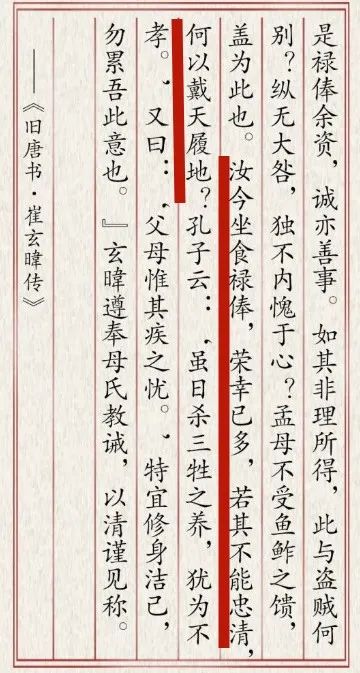 是禄俸余资，诚亦善事。如其非理所得，此与盗贼何
别？纵无大咎，独不内愧于心？孟母不受鱼鲊之馈，
盖为此也。汝今坐食禄俸，荣幸已多，若其不能忠清，
何以戴天履地？孔子云：‘虽日杀三牲之养，犹为不
孝。’又曰：‘父母惟其疾之忧。’特宜修身洁己，
勿累吾此意也。』玄暐遵奉母氏教诫，以清谨见称。
——《旧唐书·崔玄暐传》